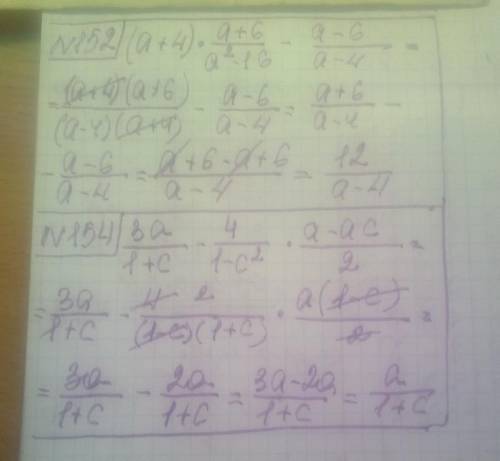 N152 (a+4) · (a+6)/(a²-16) - (a-6)/(a-4) =
= ((a+4)(a+6))/((a-4)(a+4)) - (a-6)/(a-4) = (a+6)/(a-4) -
- (a-6)/(a-4) = (a+6-a+6)/(a-4) = 12/(a-4)
N154 3a/(1+c) - 4/(1-c²) · (a-ac)/2 =
= 3a/(1+c) - (4 2)/((1-c)(1+c)) · (a(1-c))/2 =
= 3a/(1+c) - 2a/(1+c) = (3a-2a)/(1+c) = a/(1+c)